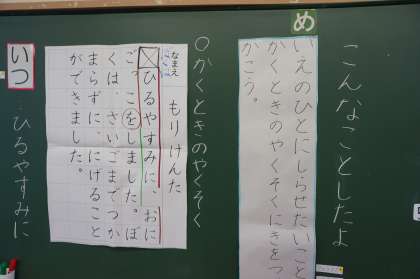 こんなことしたよ
め
いえのひとにしらせたいことを
かくときのやくそくにきをつけて
かこう。
〇かくときのやくそく
なまえ もり けんた
ひるやすみに、おに
ごっこをしました。ぼ
くは、さいごまでつか
まらずに、にげること
ができました。
いつ…ひるやすみに